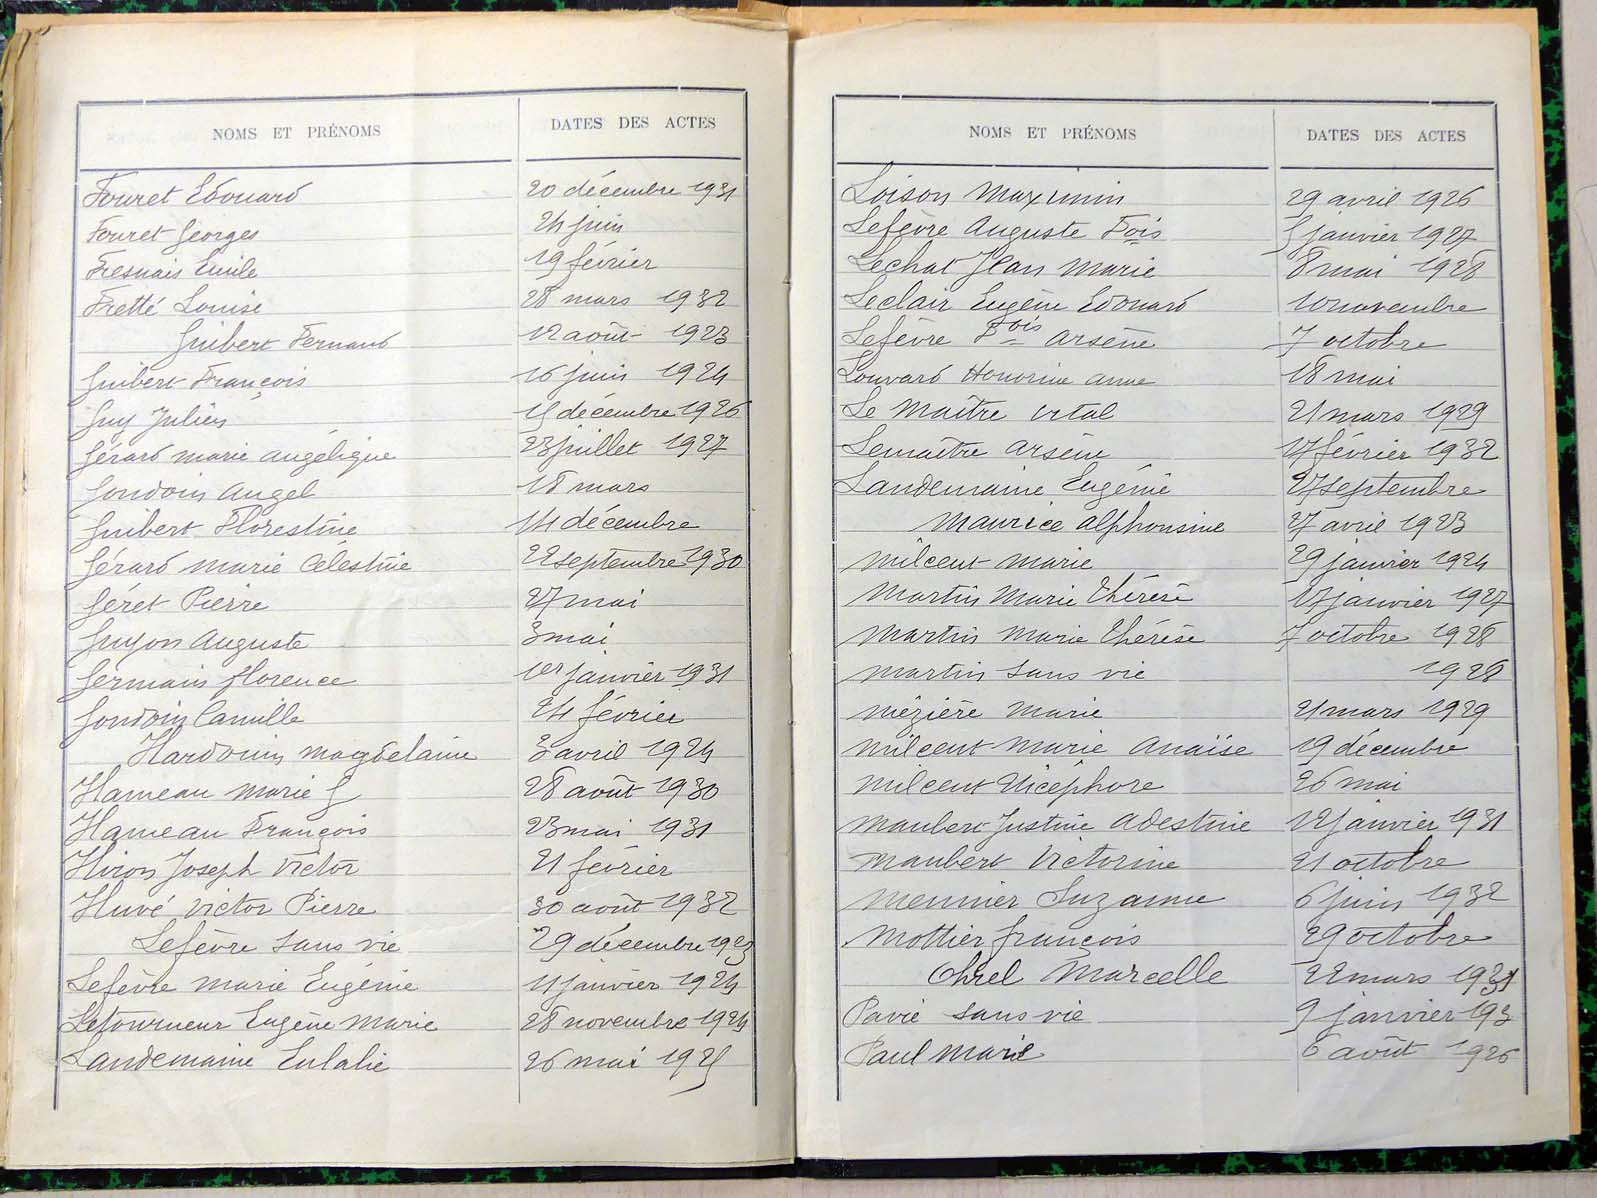 NOMS ET PRÉNOMS DATES DES ACTES
Fouret Edouard 20 décembre 1931
Fouret Georges 24 juin
Fresnais Emile 19 février
Fretté Louise 28 mars 1932
Guibert Fernand 12 août 1923
Guibert François 16 juin 1924
Guy Julien 15 décembre 1926
Gérard marie angélique 23 juillet 1927
Gondouin Angel 18 mars
Guibert Florestine 14 décembre
Gérard marie Célestine 22 septembre 1930
Géret Pierre 27 mai
Guyon Auguste 3 mai
Germain florence 1er janvier 1931
Gondouin Camille 24 février
Hardouin magdelaine 3 avril 1924
Hameau Marie J 28 août 1930
Hameau François 23 mai 1931
Hiron Joseph Victor 21 février
Huvé Victor Pierre 30 août 1932
Lefèvre sans vie 29 décembre 1923
Lefèvre marie Eugénie 11 janvier 1924
Letourneur Eugène Marie 28 novembre 1924
Landemaine Eulalie 26 mai 1925
NOMS ET PRÉNOMS DATES DES ACTES
Loison Maximin 29 avril 1926
Lefèvre Auguste Fois 5 janvier 1927
Lechat Jean Marie 8 mai 1928
Leclair Eugène Edouard 10 novembre
Lefèvre Fois Arsène 7 octobre
Louvard Honorine anne 18 mai
Le Maître vital 21 mars 1929
Lemaître arsène 17 février 1932
Landemaine Eugénie 27 septembre
Maurice alphonsine 27 avril 1923
Milcent marie 29 janvier 1924
Martin Marie Thérèse 17 janvier 1927
Martin Marie Thérèse 7 octobre 1928
Martin sans vie 1928
Mézière Marie 21 mars 1929
Milcent Marie Anaïse 19 décembre
Milcent Nicéphore 26 mai
Maubert Justine adestine 12 janvier 1931
Maubert Victorine 21 octobre
Meunier Suzanne 6 juin 1932
Mottier françois 29 octobre
Ohrel Marcelle 22 mars 1931
Pavie sans vie 9 janvier 193
Paul Marie 6 août 1926